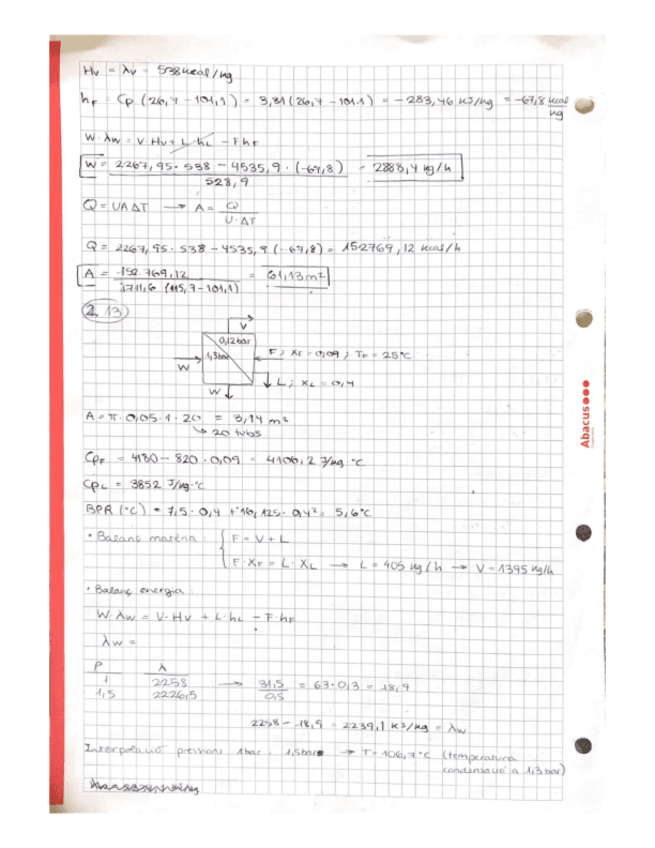 Hv = λv = 538 kcal/kg
hF = Cp (26,7 - 101,1) = 3,81 (26,7 - 101,1) = -283,46 KJ/kg = -67,8 kcal/kg
W·λw = V·Hv + L·hL - F·hF
W = 2267,95·538 - 4535,9·(-67,8) / 528,9 = 2888,4 kg/h
Q = UAΔT → A = Q / U·ΔT
Q = 2267,95·538 - 4535,9 (-67,8) = 152769,12 kcal/h
A = 152.769,12 / 1711,6 (115,7-101,1) = 61,13 m²
2.13)
V
0,12 bar
1,3 bar
F ; XF = 0,09 ; TF = 25°C
W
L ; XL = 0,4
W
A = π·0,05·1·20 = 3,14 m²
↳ 20 tubs
CpF = 4180 - 820·0,09 = 4106,2 J/kg·°C
CpL = 3852 J/kg·°C
BPR (°C) = 7,5·0,4 + 16,125·0,4² = 5,6°C
• Balanç matèria: { F = V + L
F·XF = L·XL → L = 405 kg/h → V = 1395 kg/h
• Balanç energia:
W·λw = V·Hv + L·hL - F·hF
λw =
P λ
1 2258 → 31,5 / 0,5 = 63·0,3 = 18,9
1,5 2226,5
2258 - 18,9 = 2239,1 KJ/kg = λw
Interpolació pressions 1bar i 1,5bar → T = 106,7°C (temperatura
condensació a 1,3 bar)
Abacus